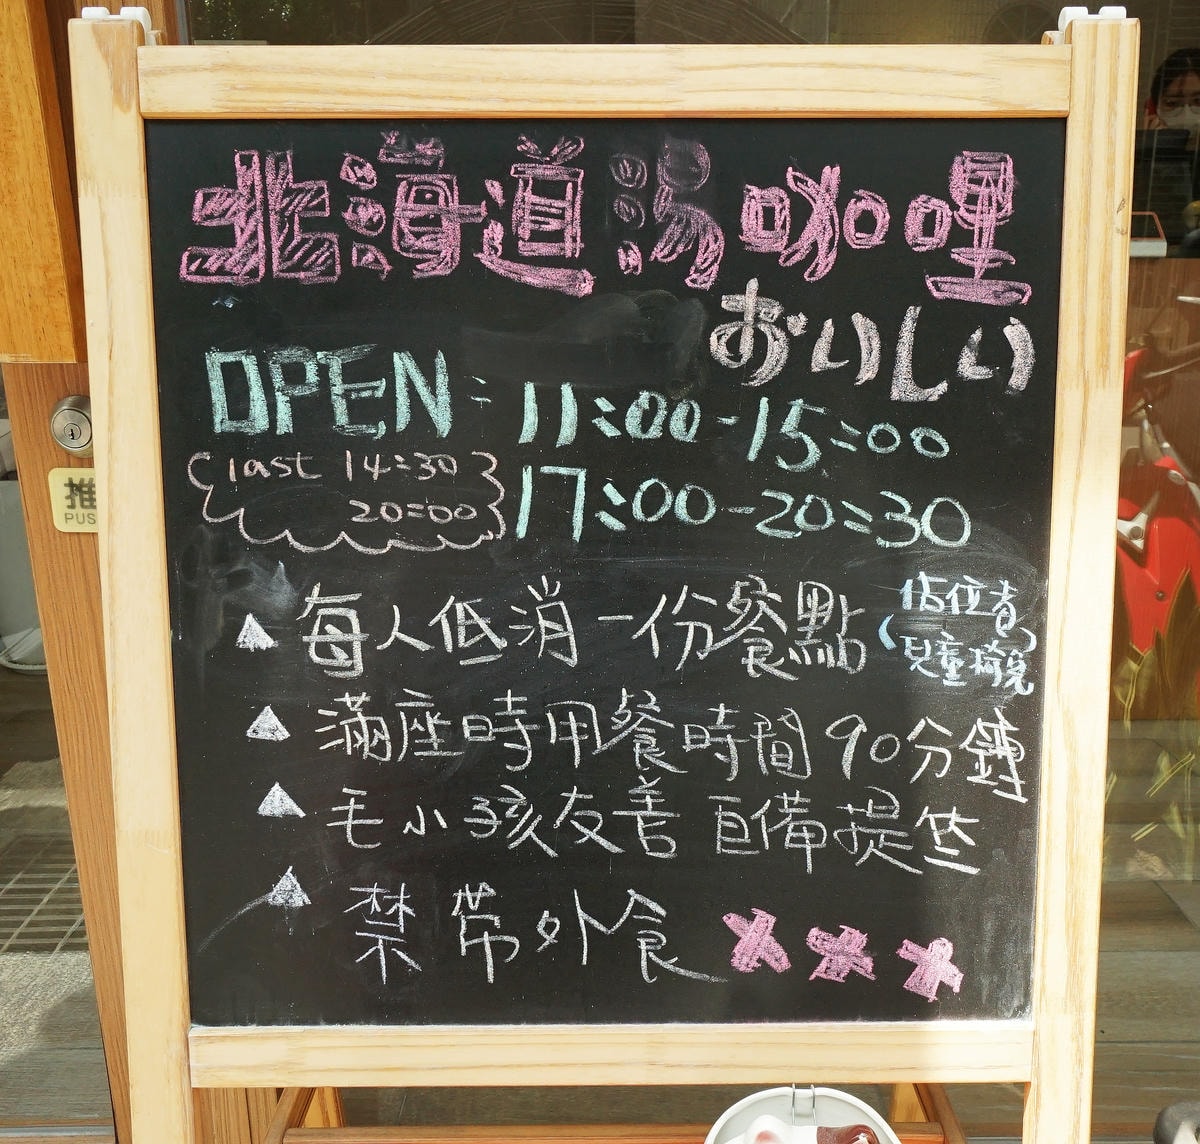 北海道湯咖哩
おいしい
OPEN: 11:00-15:00
(last 14:30
20:00)
17:00-20:30
▲ 每人低消一份餐點
(佔位者
兒童)
▲ 滿座時用餐時間90分鐘
▲ 毛小孩友善 自備提
▲ 禁帶外食 ×××
推
PUS